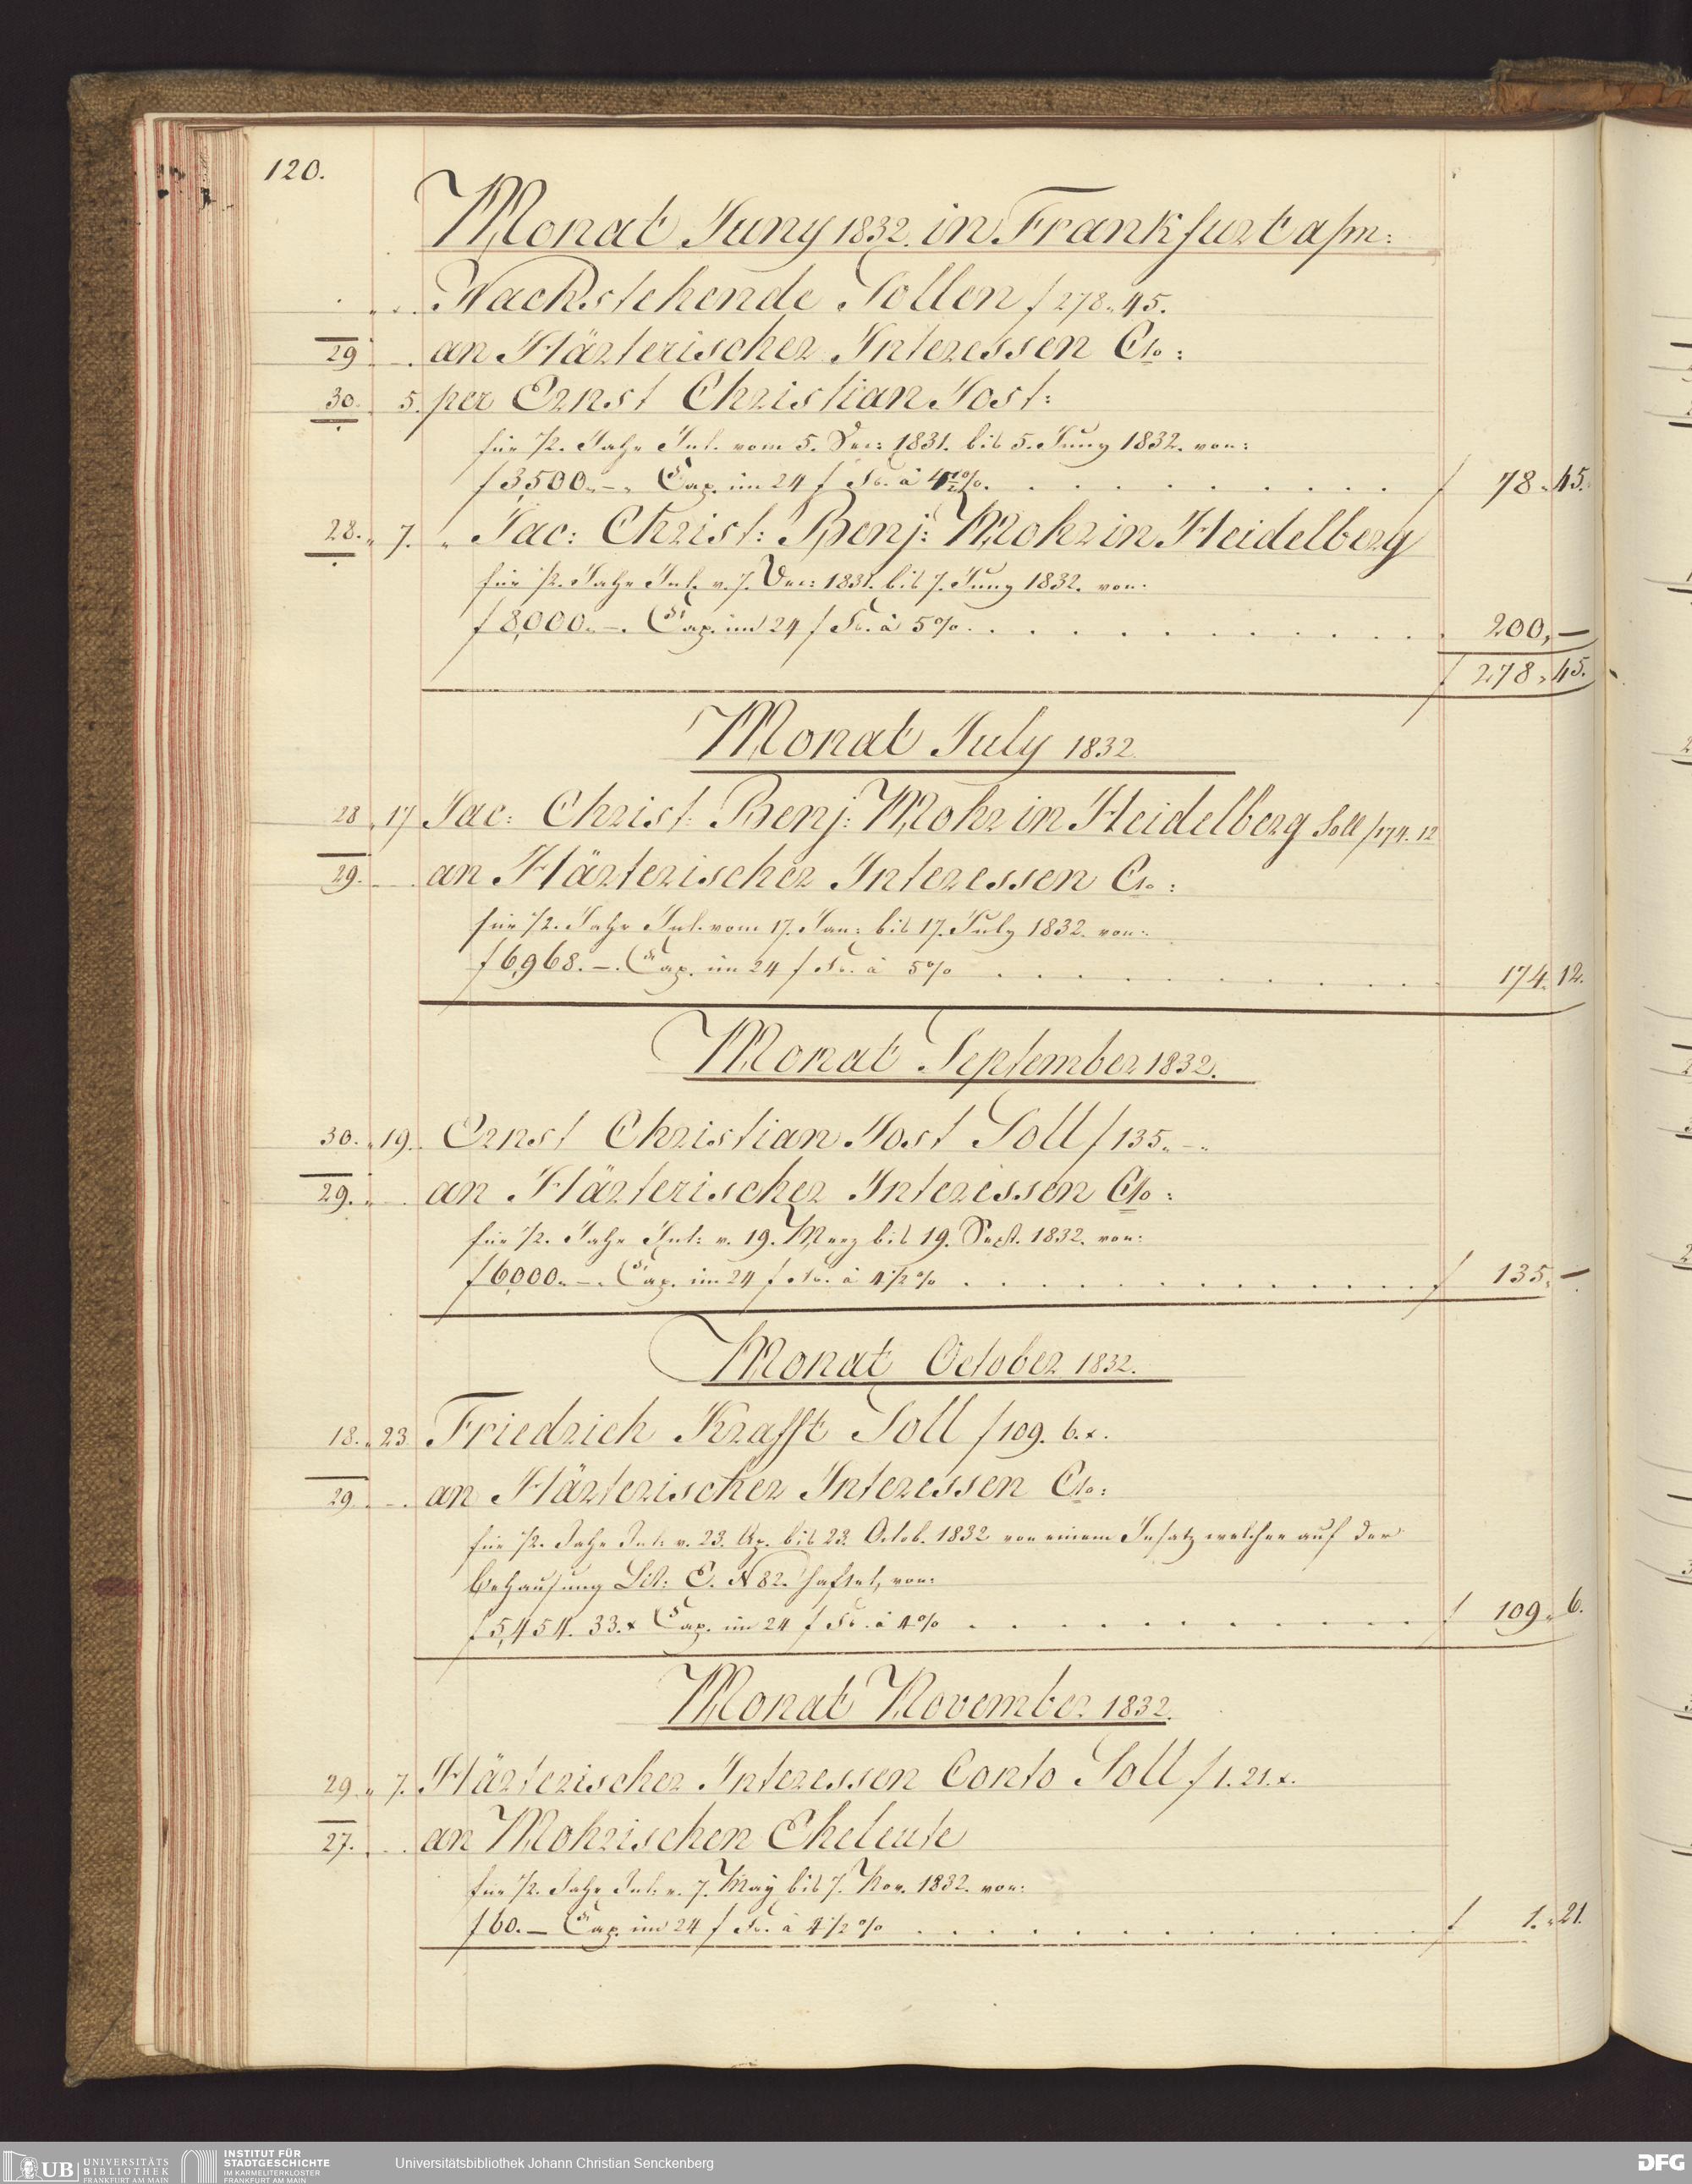 120.
Monat Juny 1832. in Frankfurt a/m:
Nachstehende Sollen f 278. 45.
29 an Härterischer Interessen Cto:
30. 5. per Ernst Christian Jost:
für 1/2. Jahr Int. vom 5. Dec: 1831. bis 5. Juny 1832. von:
f 3,500. – . Cap. im 24 f Fs. à 4 1/2 %. f 78. 45.
28. 7. " Jac: Christ: Benj: Mohr in Heidelberg
für 1/2. Jahr Int. v. 7. Dec: 1831. bis 7. Juny 1832. von:
f 8,000. – . Cap. im 24 f Fs. à 5 %. 200, –
f 278. 45.
Monat July 1832.
28 17 Jac: Christ: Benj: Mohr in Heidelberg Soll f 174. 12
29. an Härterischer Interessen Cto:
für 1/2. Jahr Int. vom 17. Jan: bis 17. July 1832. von:
f 6,968. – . Cap. im 24 f Fs. à 5 % 174. 12.
Monat September 1832.
30. 19. Ernst Christian Jost Soll f 135. – .
29. an Härterischer Interessen Cto:
für 1/2. Jahr Int: v. 19. Merz bis 19. Sept. 1832. von:
f 6,000. – . Cap. im 24 f Fs. à 4 1/2 % f 135. –
Monat October 1832.
18. 23. Friedrich Krafft Soll f 109. 6. x.
29. an Härterischer Interessen Cto:
für 1/2. Jahr Int: v. 23. Ap. bis 23. Octob. 1832 von einem Insatz welcher auf der
Behausung Lit: E. N 82. haftet, von:
f 5,454. 33. x Cap. im 24 f Fs. à 4 % f 109. 6.
Monat November 1832.
29. 7. Härterischer Interessen Conto Soll f 1. 21. x.
27. an Mohrischen Eheleute
für 1/2. Jahr Int: v. 7. May bis 7. Nov. 1832. von:
f 60. – Cap. im 24 f Fs. à 4 1/2 % f 1. 21.
UB UNIVERSITÄTS BIBLIOTHEK FRANKFURT AM MAIN
INSTITUT FÜR STADTGESCHICHTE IM KARMELITERKLOSTER FRANKFURT AM MAIN
Universitätsbibliothek Johann Christian Senckenberg
DFG